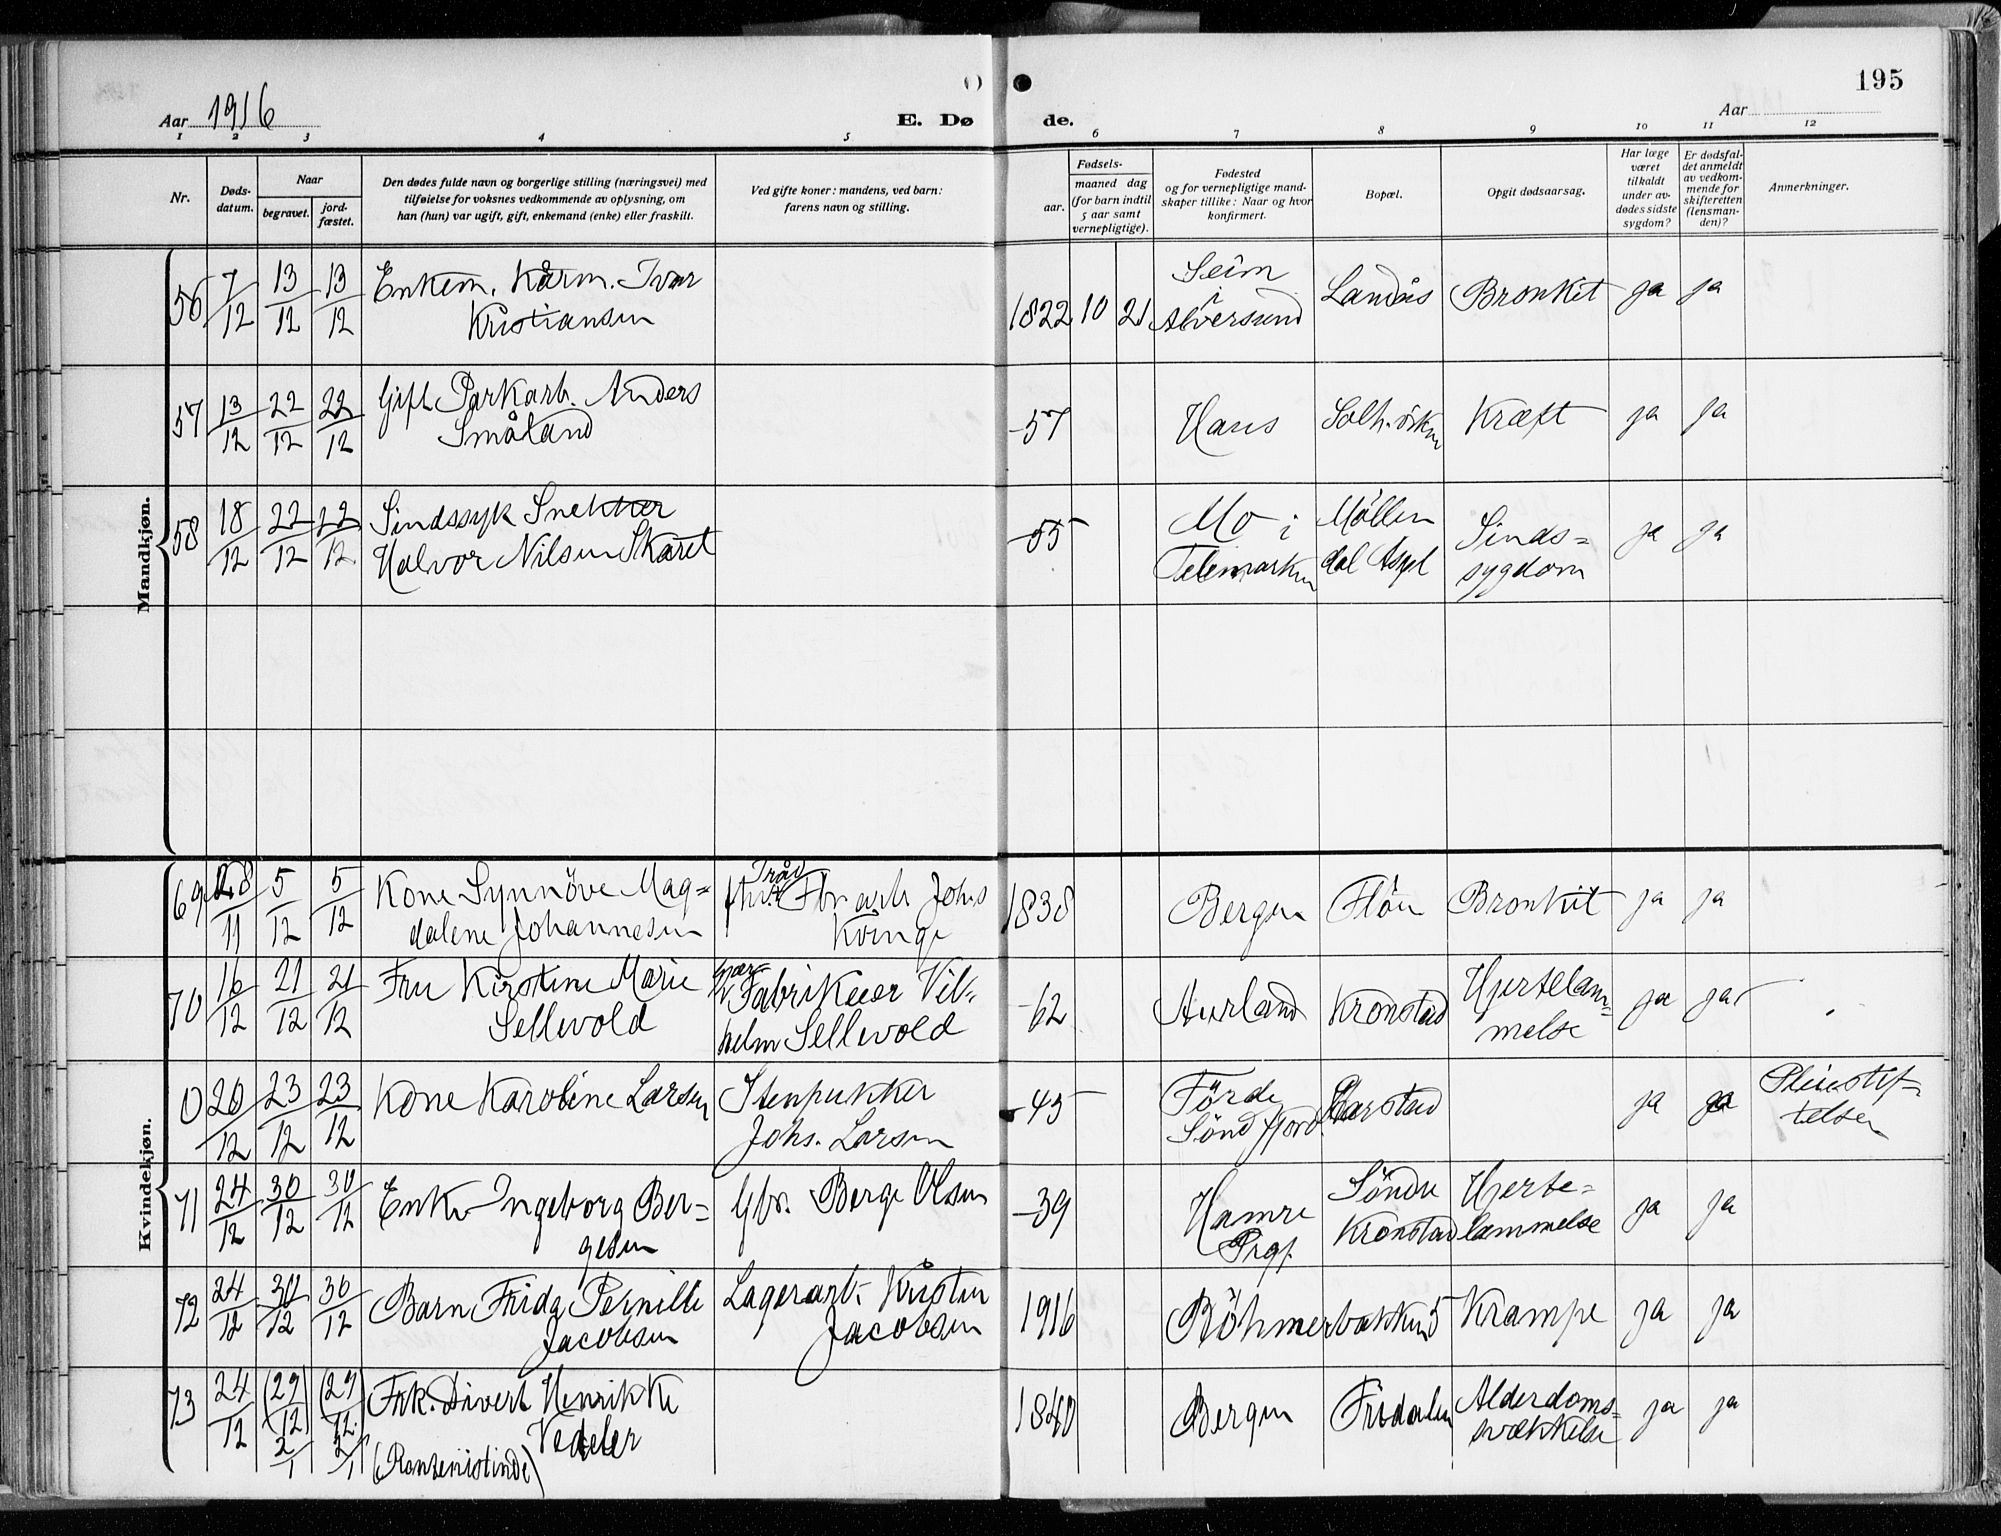 195
Aar 1916
E. Dø
de.
Aar
1 2 3 4 5 6 7 8 9 10 11 12
Nr.
Døds-
datum.
Naar
begravet.
jord-
fæstet.
Den dødes fulde navn og borgerlige stilling (næringsvei) med
tilføielse for voksnes vedkommende av oplysning, om
han (hun) var ugift, gift, enkemand (enke) eller fraskilt.
Ved gifte koner: mandens, ved barn:
farens navn og stilling.
Fødsels-
aar.
maaned dag
(for barn indtil
5 aar samt
vernepligtige).
Fødested
og for vernepligtige mand-
skaper tillike: Naar og hvor
konfirmert.
Bopæl.
Opgit dødsaarsag.
Har læge
været
tilkaldt
under av-
dødes sidste
sygdom?
Er dødsfal-
det anmeldt
av vedkom-
mende for
skifteretten
(lensman-
den)?
Anmerkninger.
Mandkjøn.
56 7/12 13/12 13/12 Enkem. Kårm. Ivar
Kristiansen
1822 10 21 Seim
i
Alversund
Landås Bronkit ja ja
57 13/12 22/12 22/12 Gift Parkarb. Anders
Småland
-57 Haus Kræft ja ja
58 18/12 22/12 22/12 Sindssyk Snekker
Halvor Nilsen Skaret
-55 Mo i
Telemarken
Möllen
dal Asyl
Sinds=
sygdom
ja ja
Kvindekjøn.
69 28/11 5/12 5/12 Kone Synnöve Mag=
dalene Johannesen
Tråd
Fbr arb Johs
Kvinge
1838 Bergen Flöen Bronkit ja ja
70 16/12 21/12 21/12 Fru Kirstine Marie
Sellevold
Fabrikeier Vil-
helm Sellevold
-62 Aurland Kronstad Hjertelam=
melse
ja ja
0 20/12 23/12 23/12 Kone Karoline Larsen
Stenpukker
Johs. Larsen
-45 Förde
Söndfjord
Aarstad ja ja Pleiestif-
telsen
71 24/12 30/12 30/12 Enke Ingeborg Ber=
gesen
Gbr. Berge Olsen
-39 Hamre
Prgj.
Söndre
Kronstad
Hjerte=
lammelse
ja ja
72 24/12 30/12 30/12 Barn Frida Pernille
Jacobsen
Lagerarb. Kristen
Jacobsen
1916 Böhmerbakken 5 Krampe ja ja
73 24/12 (29/12) 2/1 (29/12) 2/1 Frk. Divert Henrikke
Vedeler
(Rentenistinde)
1840 Bergen Fridalen Alderdoms=
svækkelse
ja ja